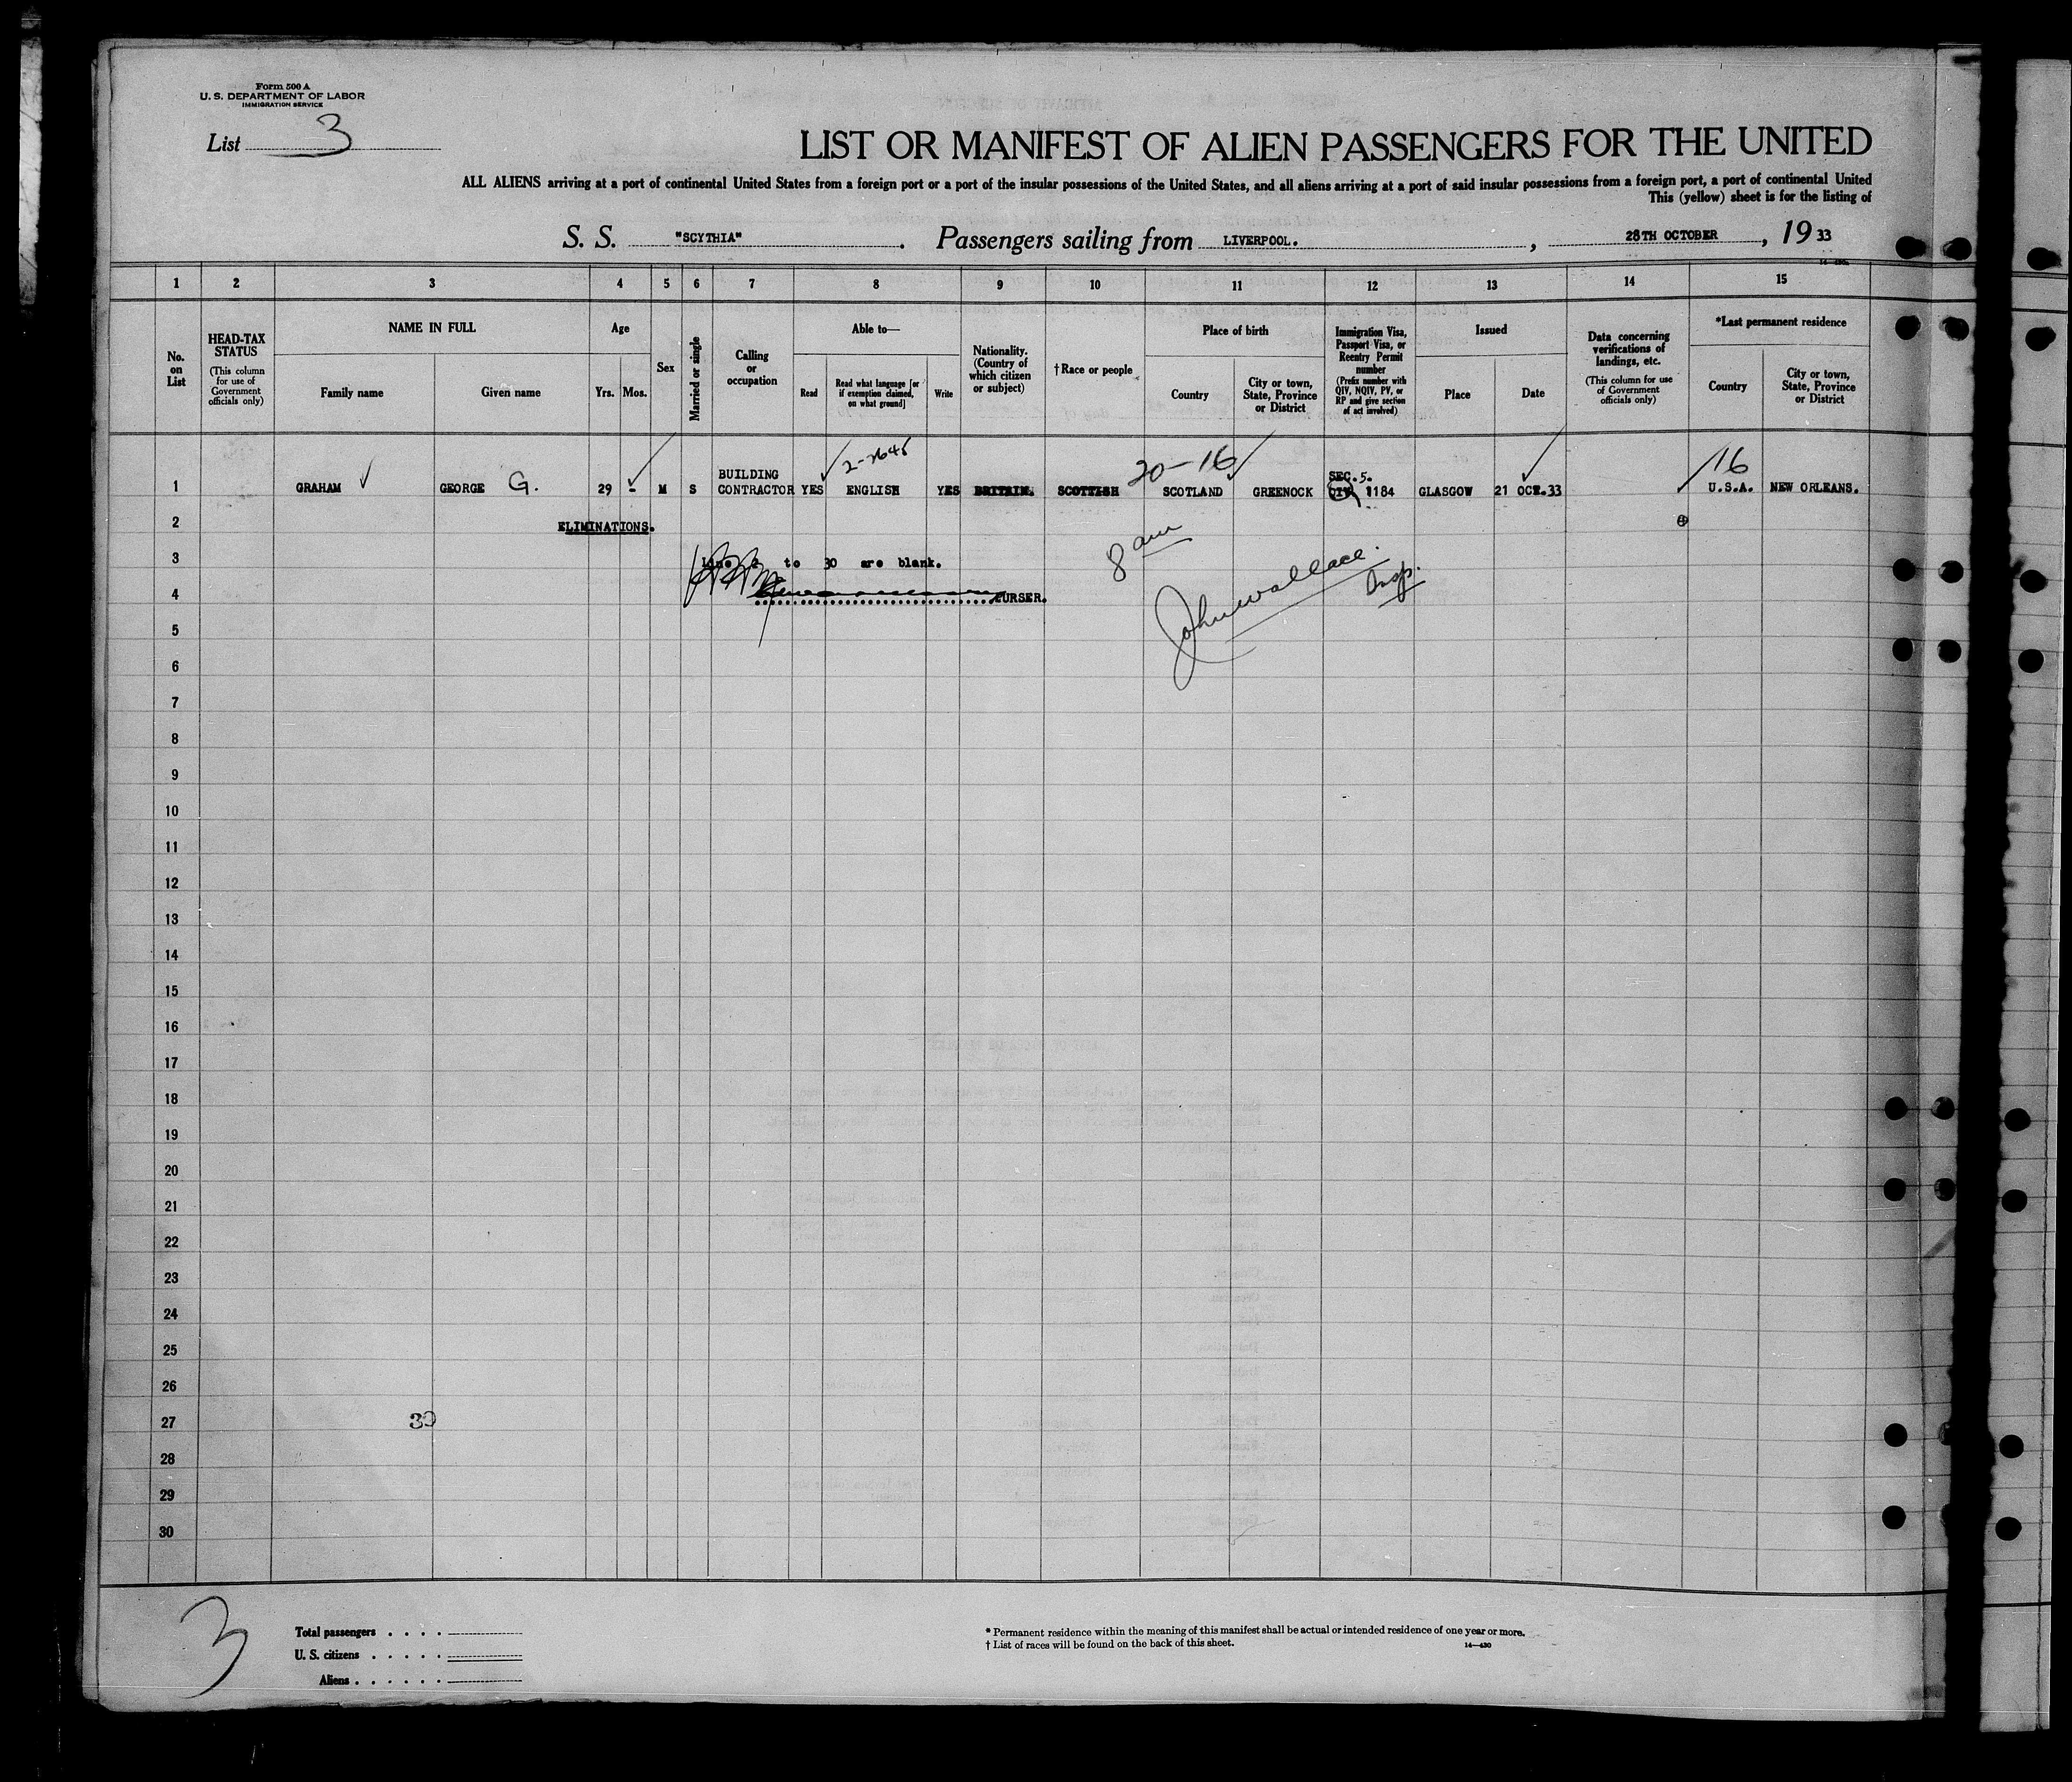 Form 500 A
U. S. DEPARTMENT OF LABOR
IMMIGRATION SERVICE
List 3
LIST OR MANIFEST OF ALIEN PASSENGERS FOR THE UNITED
ALL ALIENS arriving at a port of continental United States from a foreign port or a port of the insular possessions of the United States, and all aliens arriving at a port of said insular possessions from a foreign port, a port of continental United
This (yellow) sheet is for the listing of
S. S. "SCYTHIA". Passengers sailing from LIVERPOOL. , 28TH OCTOBER , 19 33
1 2 3 4 5 6 7 8 9 10 11 12 13 14 15
No. on List
HEAD-TAX STATUS
(This column for use of Government officials only)
NAME IN FULL
Family name Given name
Age
Yrs. Mos.
Sex
Married or single
Calling or occupation
Able to—
Read
Read what language [or if exemption claimed, on what ground]
Write
Nationality. (Country of which citizen or subject)
†Race or people
Place of birth
Country
City or town, State, Province or District
Immigration Visa, Passport Visa, or Reentry Permit number
(Prefix number with QIV, NQIV, PV, or RP and give section of act involved)
Issued
Place Date
Data concerning verifications of landings, etc.
(This column for use of Government officials only)
*Last permanent residence
Country
City or town, State, Province or District
20-16 16
BUILDING SEC.5.
1 GRAHAM GEORGE G. 29 - M S CONTRACTOR YES ENGLISH YES BRITAIN. SCOTTISH SCOTLAND GREENOCK QIV 1184 GLASGOW 21 OCT.33 U.S.A. NEW ORLEANS.
2 ELIMINATIONS.
3 Line 2 to 30 are blank. 8 am
4 PURSER. John Wallace. Insp.
5
6
7
8
9
10
11
12
13
14
15
16
17
18
19
20
21
22
23
24
25
26
27 30
28
29
30
3
Total passengers . . . .
U. S. citizens . . . . .
Aliens . . . . . .
* Permanent residence within the meaning of this manifest shall be actual or intended residence of one year or more.
† List of races will be found on the back of this sheet. 14—430